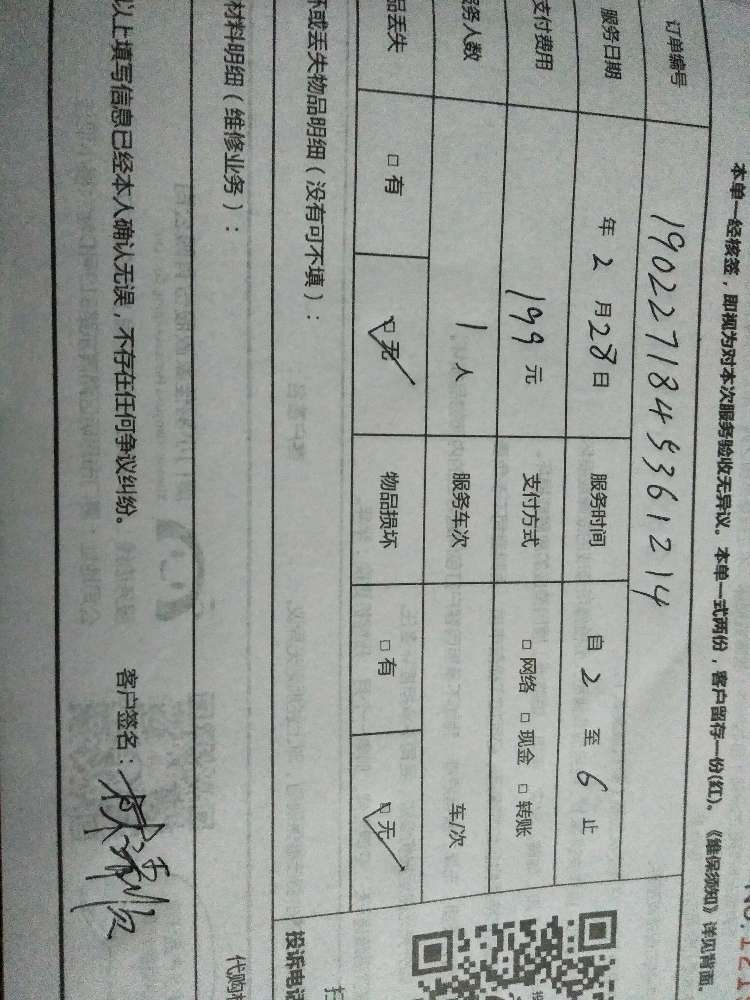 No.121
本单一经核签，即视为对本次服务验收无异议。本单一式两份，客户留存一份(红)。《维保须知》详见背面。
订单编号 1902271845361214
服务日期 年 2 月 28 日 服务时间 自 2 至 6 止
支付费用 199 元 支付方式 □ 网络 □ 现金 □ 转账
服务人数 1 人 服务车次 车/次
品丢失 □ 有 □ 无 物品损坏 □ 有 □ 无
坏或丢失物品明细（没有可不填）：
投诉电话
材料明细（维修业务）：
代购
以上填写信息已经本人确认无误，不存在任何争议纠纷。 客户签名：